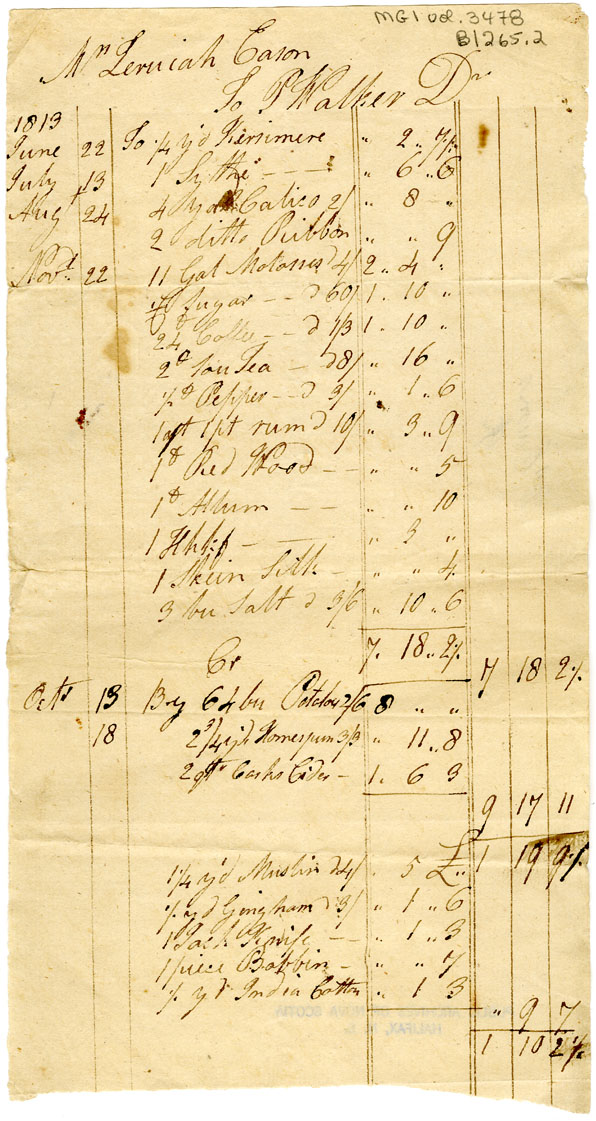 MG1 vol. 3478
B1265.2
Mr Zeruiah Eason
To P Walker Dr
1813
June 22 To 1/4 y'd Kersimere " 2 " 7 1/2
July 13 1 Sythe - - - - " 6 " 6
Augt 24 4 yds Calico 2/ " 8 "
2 ditto Ribbon " " 9
Novr. 22 11 Gal Molasses @ 4/ 2 " 4 "
Sugar - - @ 60/ 1 " 10 "
24 Coffee - - @ 1/3 1 " 10 "
2 Tea - @ 8/ " 16 "
1/2 Pepper - - @ 3/ " 1 " 6
1 qt 1 pt rum @ 10/ " 3 " 9
1 Red Wood - - " " 5
1 Allum - - - " " 10
1 Hhkf - - - - " 3 "
1 Skein Silk - " " 4
3 bu Salt @ 3/6 " 10 " 6
7 " 18 " 2 1/2 7 18 2 1/2
Cr
Octr 13 By 64 bu Potatoes 2/6 8 " "
18 2 3/4 yds Homespun 3/3 " 11 " 8
2 Casks Cider - 1 " 6 3
9 17 11
£ 1 19 9 1/2
1 1/4 y'd Muslin @ 4/ " 5 "
1/2 yd Gingham @ 3/ " 1 " 6
1 Jack Knife - - " 1 " 3
1 piece Bobbin - " " 7
1/2 yd India Cotton " 1 3
" 9 7
1 10 2 1/2
NOVA SCOTIA
HALIFAX, N. S.